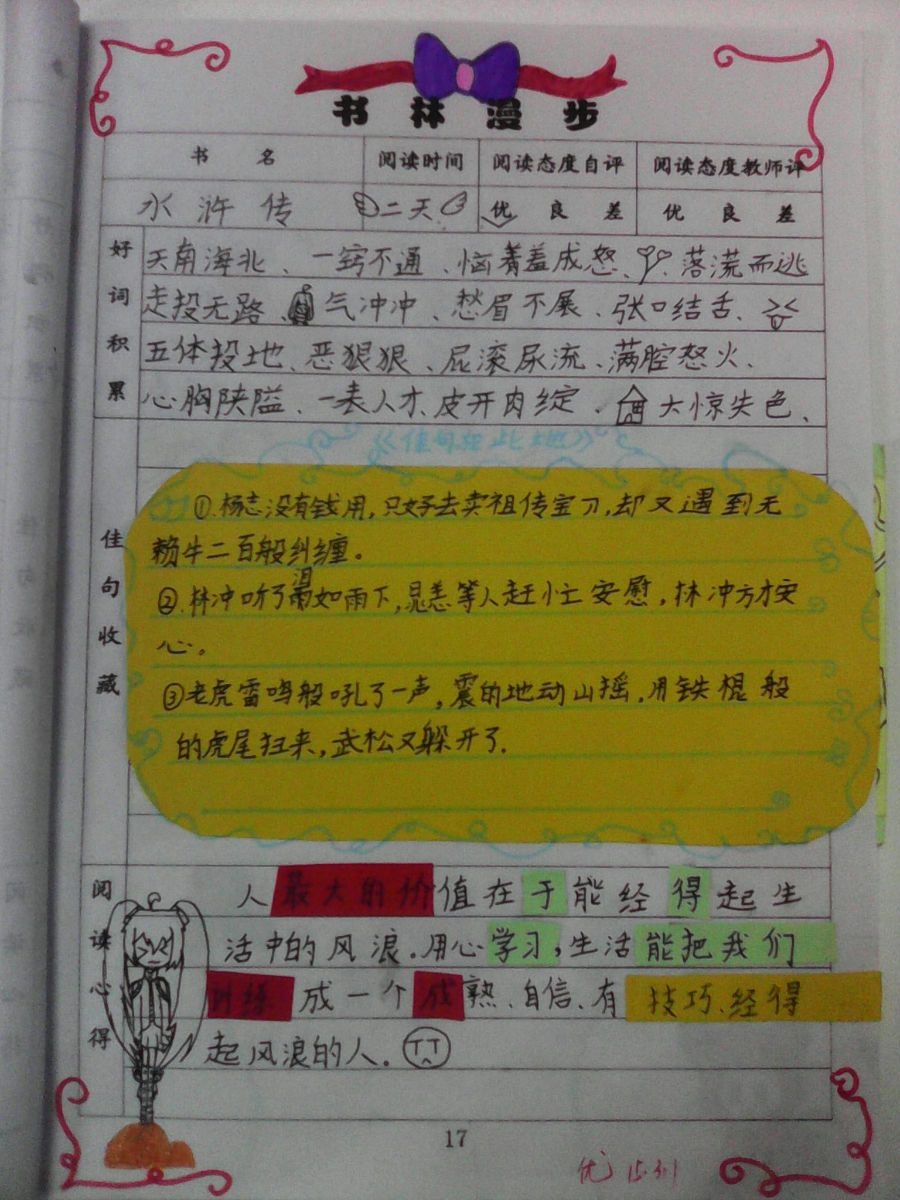 书林漫步
书名 阅读时间 阅读态度自评 阅读态度教师评
水浒传 二天 优 良 差 优 良 差
好词积累
天南海北、一窍不通、恼着羞成怒、落荒而逃
走投无路、气冲冲、愁眉不展、张口结舌、
五体投地、恶狠狠、屁滚尿流、满腔怒火、
心胸狭隘、一表人才、皮开肉绽、大惊失色、
《佳句在此地》
佳句收藏
①杨志没有钱用,只好去卖祖传宝刀,却又遇到无
赖牛二百般纠缠。
②林冲听了泪如雨下,晁盖等人赶忙安慰,林冲方才安
心。
③老虎雷鸣般吼了一声,震的地动山摇,用铁棍般
的虎尾扫来,武松又躲开了.
阅读心得
人最大的价值在于能经得起生
活中的风浪.用心学习,生活能把我们
训练成一个成熟、自信、有技巧、经得
起风浪的人.
17
优